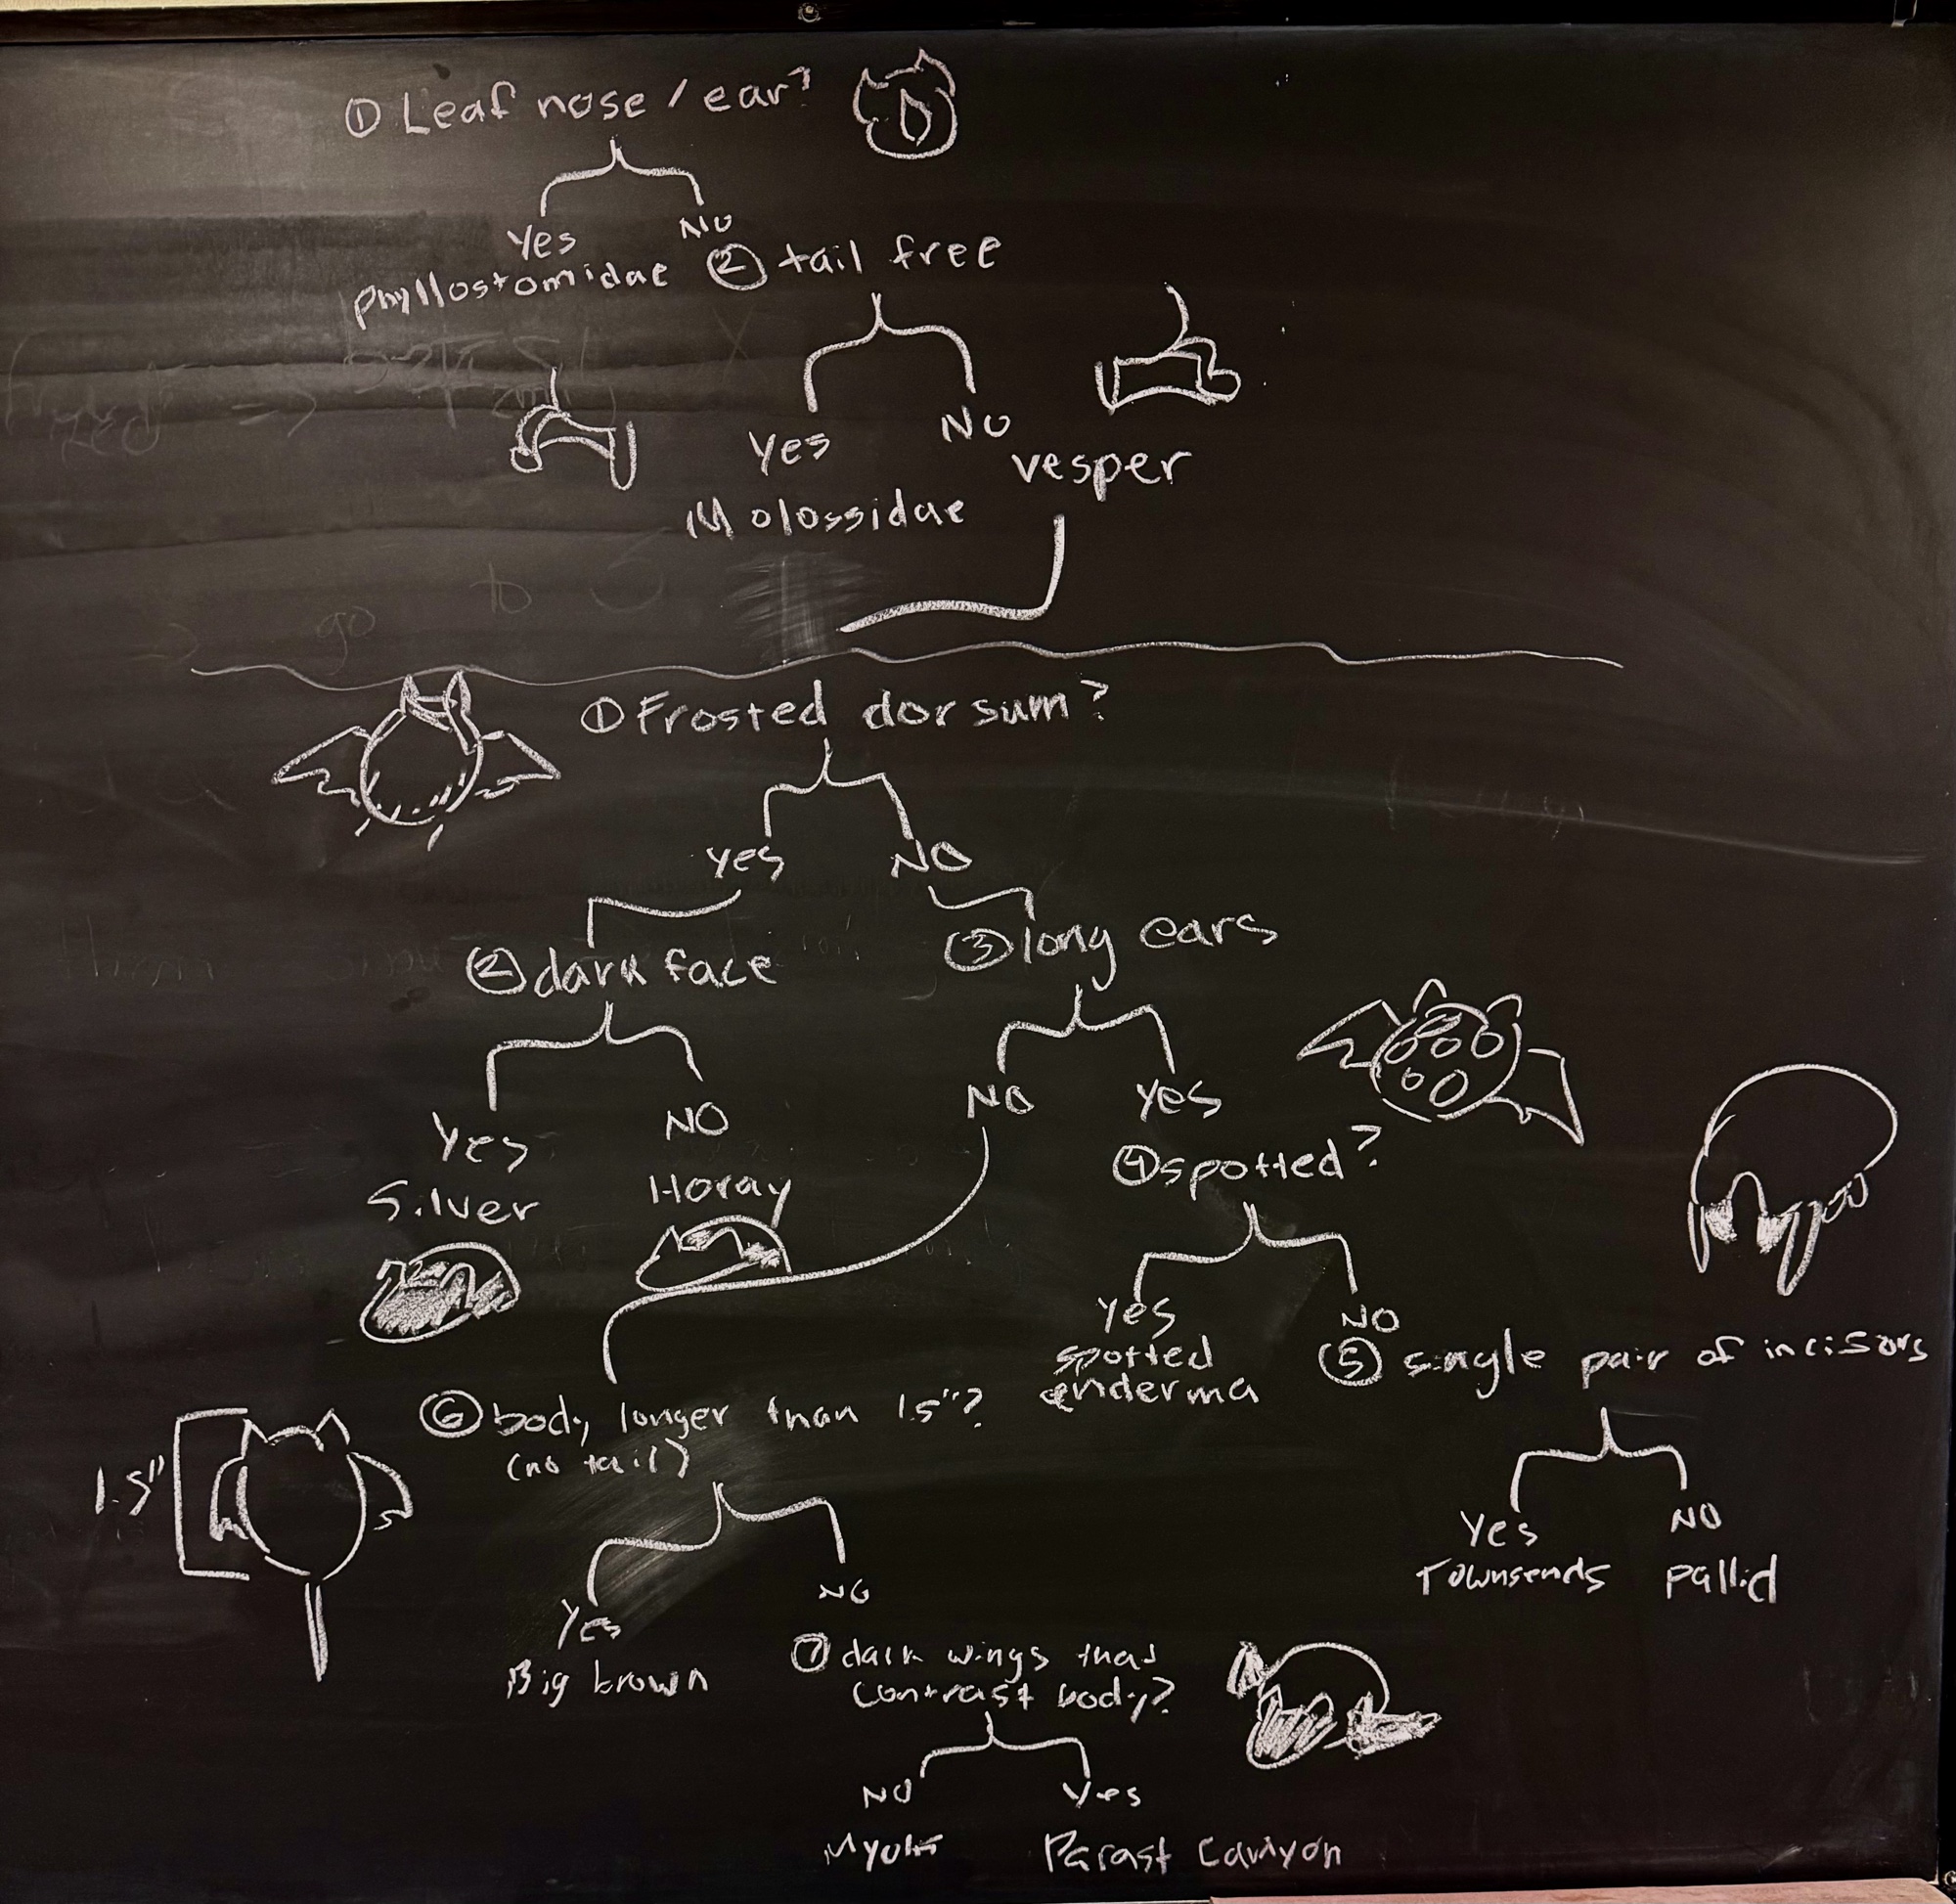 ① Leaf nose / ear?
Yes
No
Phyllostomidae
② tail free
Yes
No
vesper
Molossidae
go to 3
① Frosted dorsum?
Yes
NO
② dark face
③ long ears
Yes
NO
NO
Yes
④ spotted?
Silver
Horay
Yes
NO
spotted
enderma
⑤ single pair of incisors
⑥ body longer than 1.5"?
(no tail)
1.5"
Yes
NO
Townsends
pallid
Yes
NO
Big brown
⑦ dark wings that
contrast body?
NO
Yes
Myotis
Parast Canyon